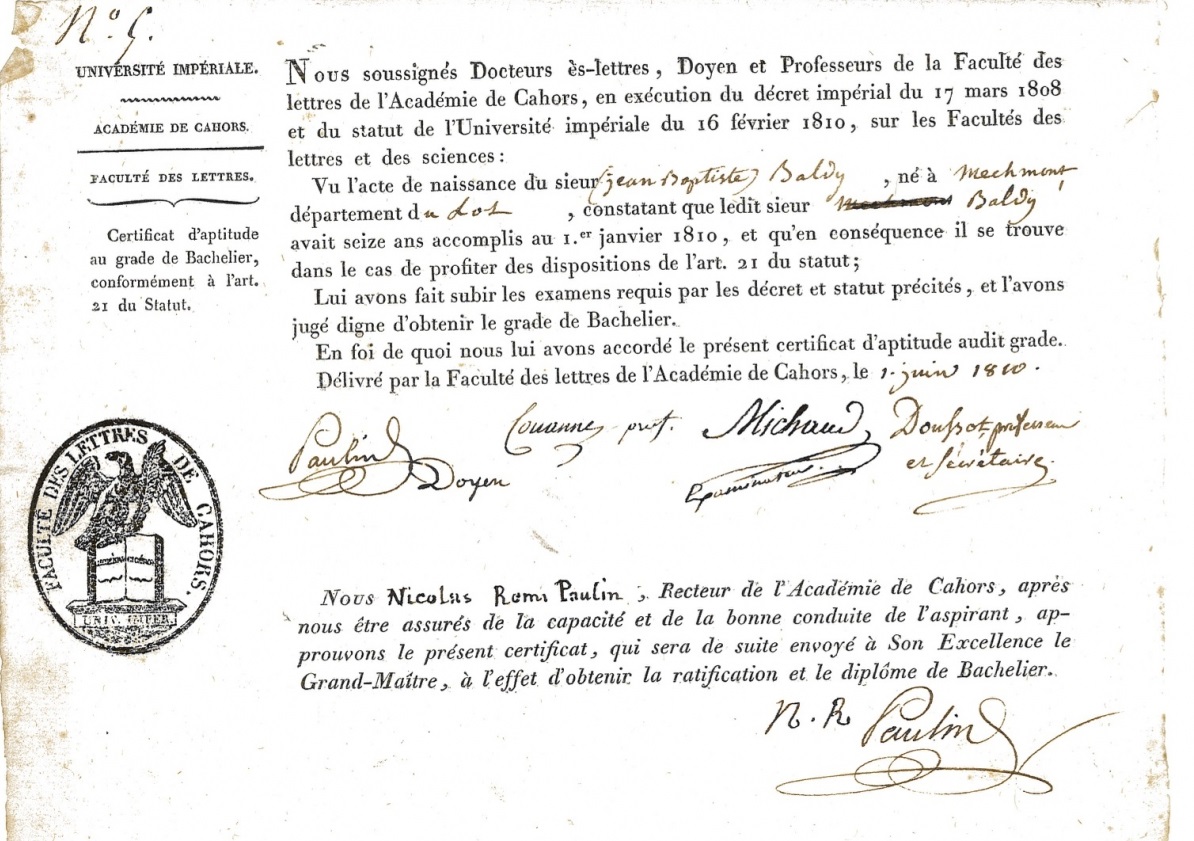 N.º 5.
UNIVERSITÉ IMPÉRIALE.
ACADÉMIE DE CAHORS.
FACULTÉ DES LETTRES.
Certificat d'aptitude
au grade de Bachelier,
conformément à l'art.
21 du Statut.
Nous soussignés Docteurs ès-lettres, Doyen et Professeurs de la Faculté des
lettres de l'Académie de Cahors, en exécution du décret impérial du 17 mars 1808
et du statut de l'Université impériale du 16 février 1810, sur les Facultés des
lettres et des sciences:
Vu l'acte de naissance du sieur (jean Baptiste) Baldy, né à Mechmont,
département du Lot, constatant que ledit sieur Mechmont Baldy
avait seize ans accomplis au 1.er janvier 1810, et qu'en conséquence il se trouve
dans le cas de profiter des dispositions de l'art. 21 du statut;
Lui avons fait subir les examens requis par les décret et statut précités, et l'avons
jugé digne d'obtenir le grade de Bachelier.
En foi de quoi nous lui avons accordé le présent certificat d'aptitude audit grade.
Délivré par la Faculté des lettres de l'Académie de Cahors, le 1. juin 1810.
Paulin Doyen
prof.
Michaud, Examinateur.
professeur
et Sécrétaire.
FACULTÉ DES LETTRES DE CAHORS.
UNIV. IMPER.
Nous Nicolas Remi Paulin, Recteur de l'Académie de Cahors, après
nous être assurés de la capacité et de la bonne conduite de l'aspirant, ap-
prouvons le présent certificat, qui sera de suite envoyé à Son Excellence le
Grand-Maître, à l'effet d'obtenir la ratification et le diplôme de Bachelier.
N. R Paulin